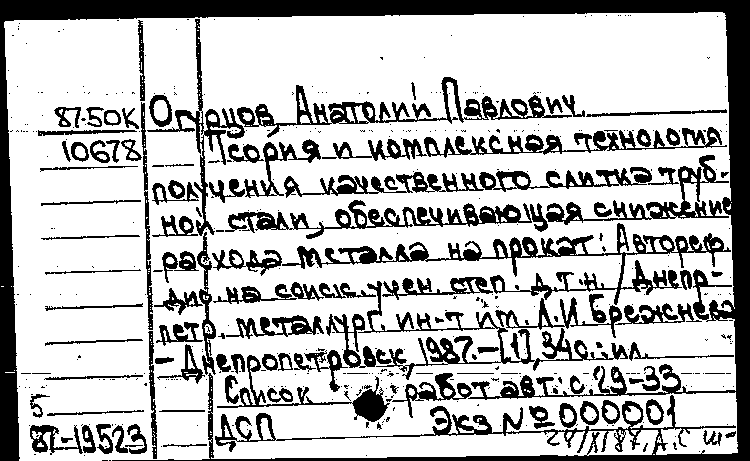 87-50К Огурцов, Анатолий Павлович.
10678 Теория и комплексная технология
получения качественного слитка труб-
ной стали, обеспечивающая снижение
расхода металла на прокат: Автореф.
дис. на соиск. учен. степ. д.т.н. / Днепр-
петр. металлург. ин-т им. Л.И. Брежнева
- Днепропетровск, 1987.-[1], 34с.: ил.
Список работ авт.: с. 29-33.
5 ДСП Экз № 000001
87-19523 24/XI 87. А.С